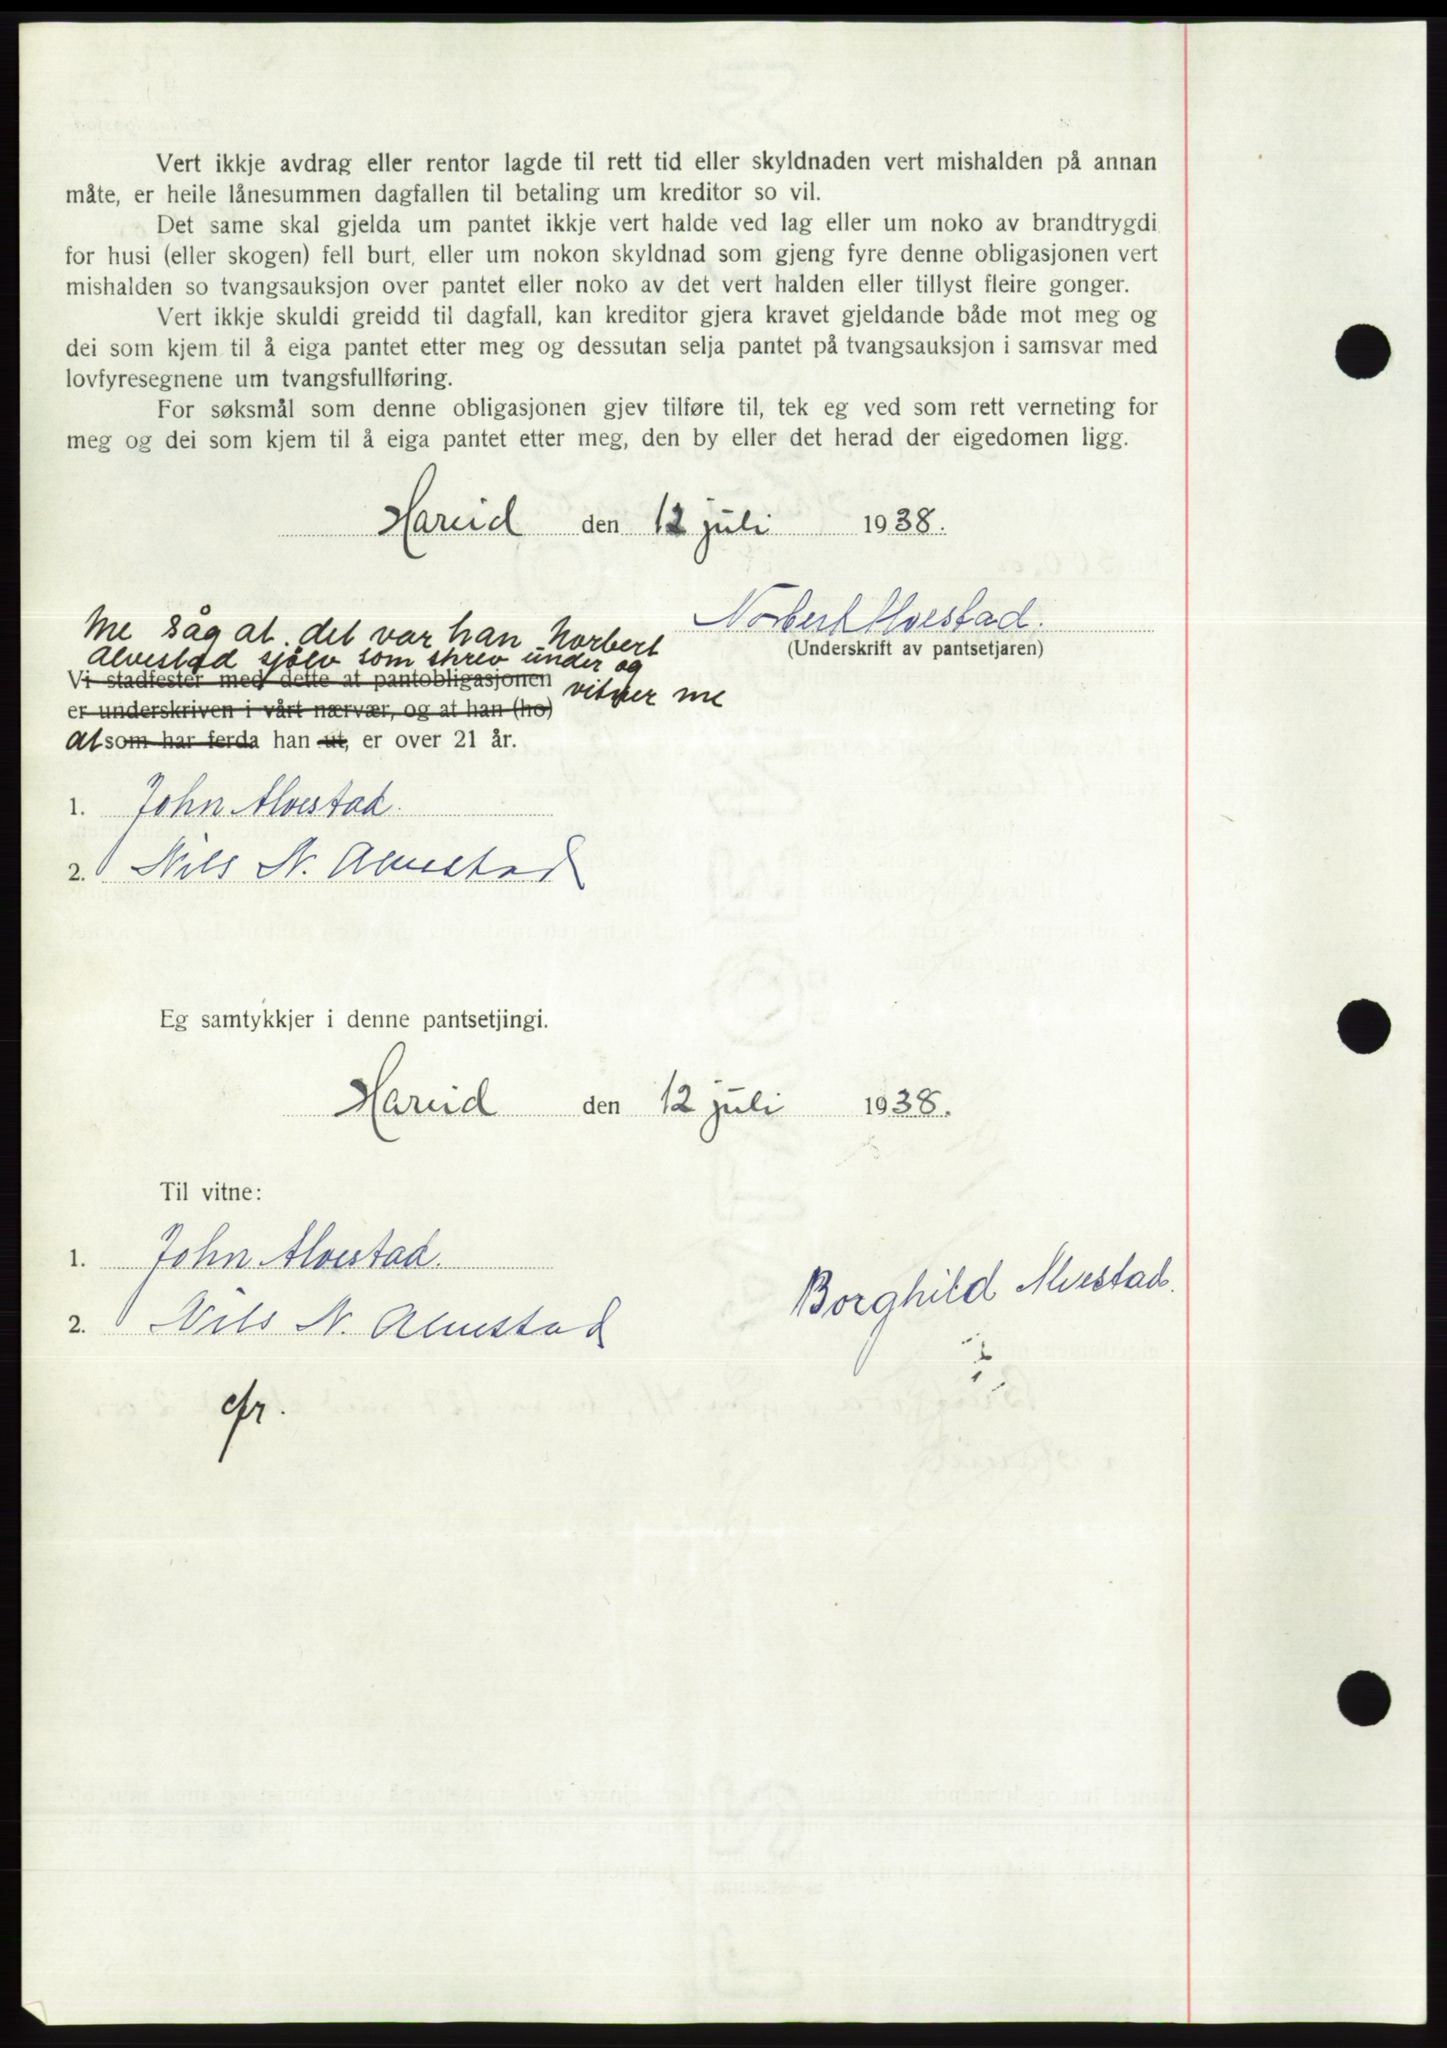 Vert ikkje avdrag eller rentor lagde til rett tid eller skyldnaden vert mishalden på annan
måte, er heile lånesummen dagfallen til betaling um kreditor so vil.
Det same skal gjelda um pantet ikkje vert halde ved lag eller um noko av brandtrygdi
for husi (eller skogen) fell burt, eller um nokon skyldnad som gjeng fyre denne obligasjonen vert
mishalden so tvangsauksjon over pantet eller noko av det vert halden eller tillyst fleire gonger.
Vert ikkje skuldi greidd til dagfall, kan kreditor gjera kravet gjeldande både mot meg og
dei som kjem til å eiga pantet etter meg og dessutan selja pantet på tvangsauksjon i samsvar med
lovfyresegnene um tvangsfullføring.
For søksmål som denne obligasjonen gjev tilføre til, tek eg ved som rett verneting for
meg og dei som kjem til å eiga pantet etter meg, den by eller det herad der eigedomen ligg.
Hareid den 12 juli 1938.
Norbert Alvestad.
(Underskrift av pantsetjaren)
Me såg at det var han Norbert
Alvestad sjølv som skrev under og
vitner me
Vi stadfester med dette at pantobligasjonen
er underskriven i vårt nærvær, og at han (ho)
at som har ferda han ut, er over 21 år.
1. John Alvestad.
2. Nils N. Alvestad
Eg samtykkjer i denne pantsetjingi.
Hareid den 12 juli 1938.
Til vitne:
1. John Alvestad.
2. Nils N. Alvestad
Borghild Alvestad.